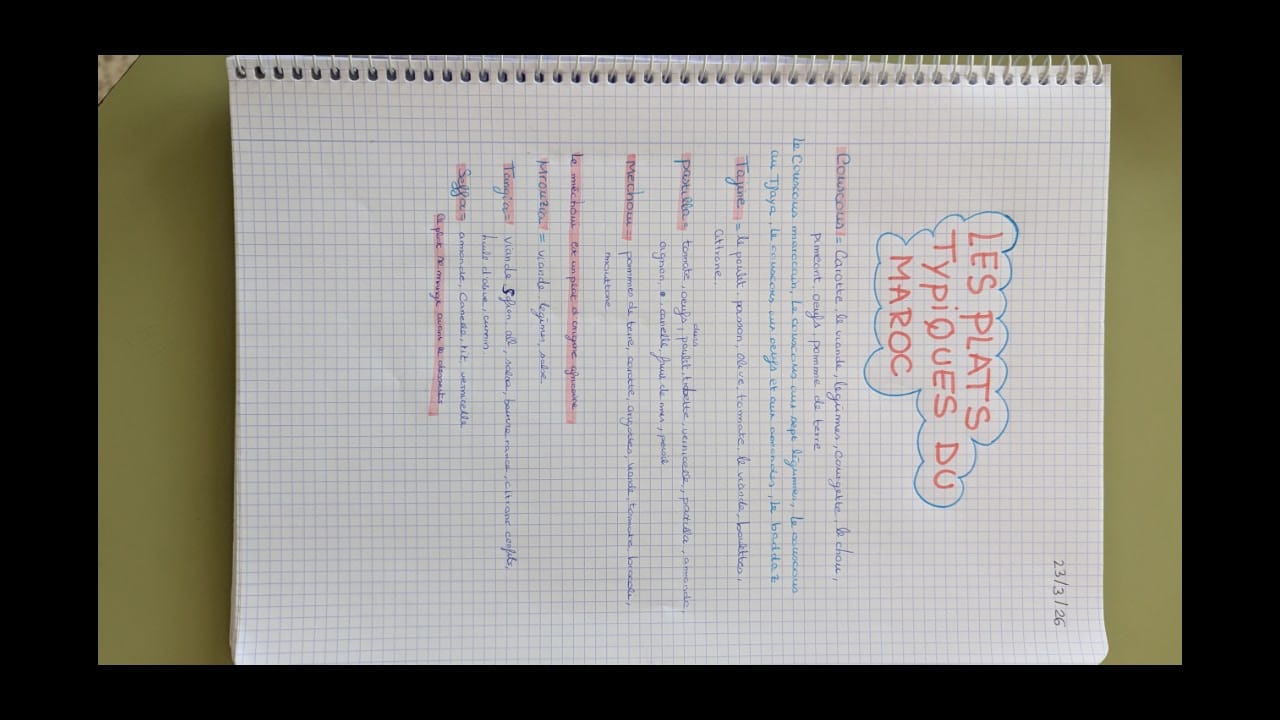 23/3/26
LES PLATS
TYPIQUES DU
MAROC
Couscous = Carotte, le viande, legumes, courgette, le chou,
piment, oeufs, pomme de terre
Le Couscous marocain, le couscous aux sept légumes, le couscous
au Tfaya, le couscous aux oeufs et aux amandes, le baddaz
Tajine = le poulet, poisson, olive, tomate, le viande, boulettes,
citrone.
Pastilla = tomate, oeufs durs, poulet, vernicelle, pastilla, amande,
oignon, canelle, fruit de mer, persil
Mechoui = pommes de terre, carotte, viande, tomate, brocoli,
mouttone
Le méchoui est un plat d'origine africaine
Mrouzia = viande, legumes, salse
Tangia = viande, ail, beurre rance, citrone confits,
huile d'olive, cumin
Seffa = amande, canelle, rit, vernicelle
Ce plat se mange avant le desserts